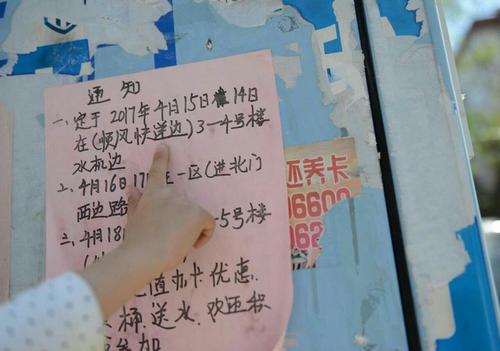 通知
一、定于2017年4月15日14日
在(顺风快送边)3—4号楼
水机边
二、4月16日17日 一区(进北门
西边路 —5号楼
三、4月18
值办卡优惠.
桶、送水、欢迎积
参加
还养卡
6600
062